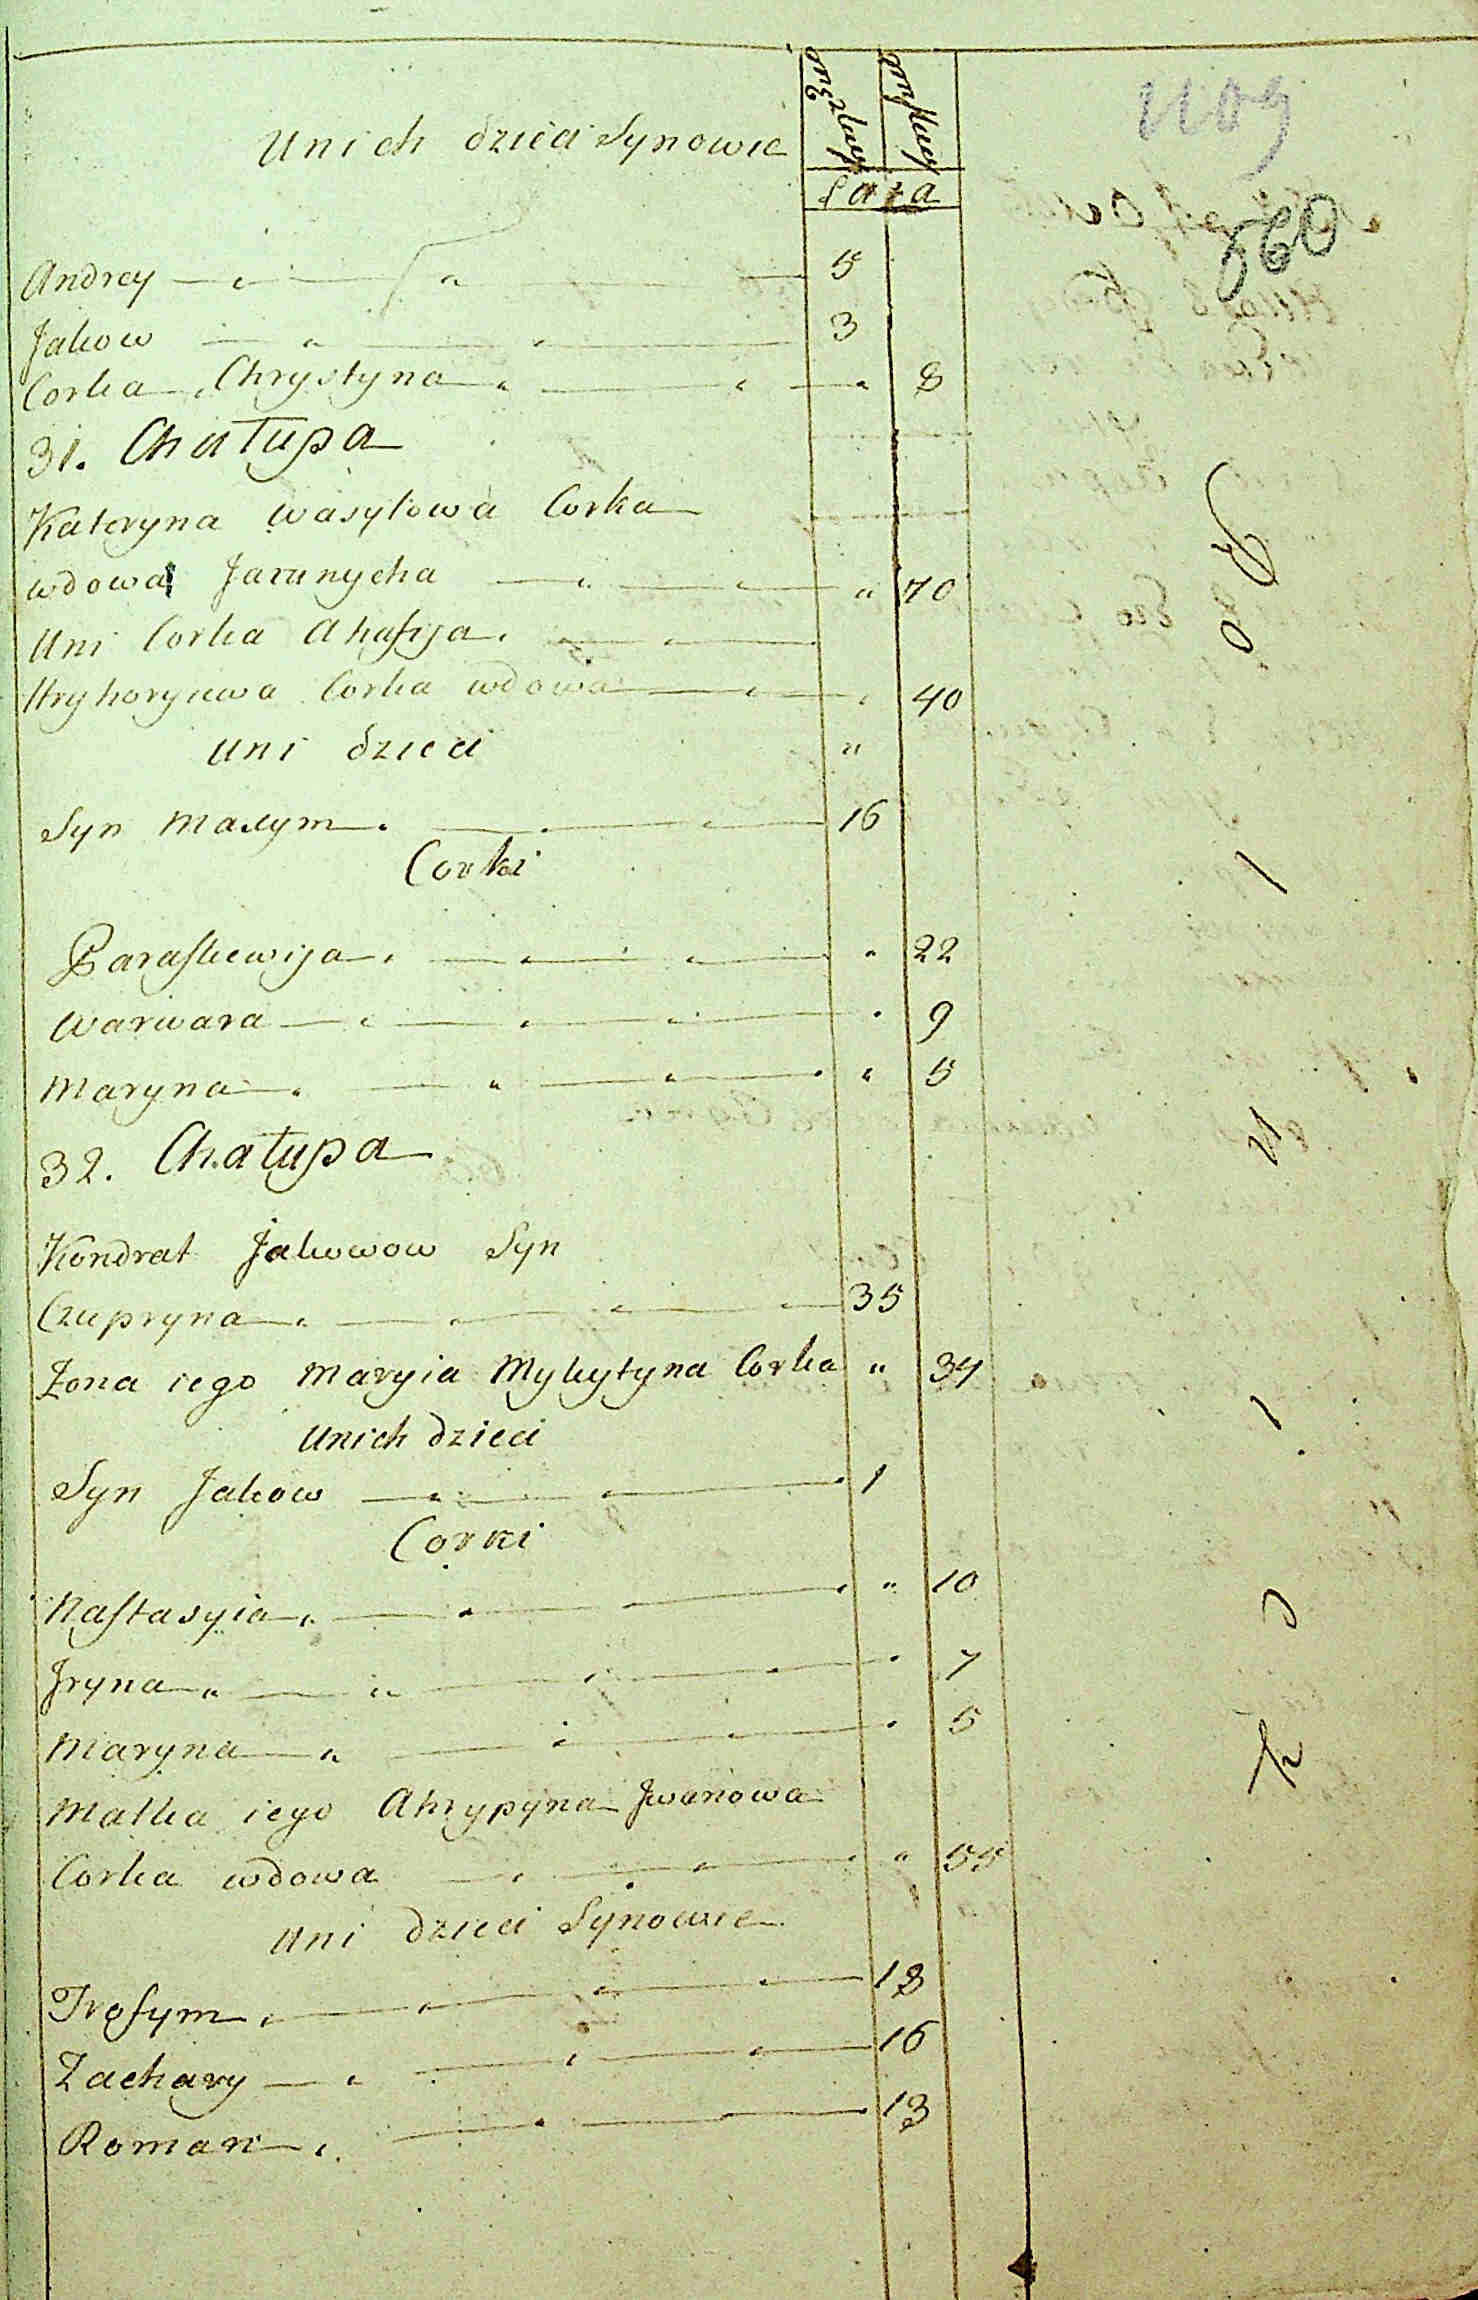 U nich dzieci Synowie
Lata
560
Andrey 5
Jakow 3
Corka Chrystyna " 8
31. Chałupa
Kateryna Wasylowa Corka
wdowa Jaranycha " 70
U ni Corka Ahafija
Hryhorijewa Corka wdowa " 40
U ni dzieci "
Syn Maxym 16
Corki
Paraskiewija " 22
Warwara " 9
Maryna " 5
32. Chałupa
Kondrat Jakowow Syn
Czupryna 35
Żona iego Maryia Mykytyna Corka " 34
U nich dzieci
Syn Jakow 1
Corki
Nastasyia " 10
Iryna " 7
Maryna " 5
Matka iego Ahrypyna Iwanowa
Corka wdowa " 55
U ni dzieci Synowie
Trofym 18
Zachary 16
Roman 13